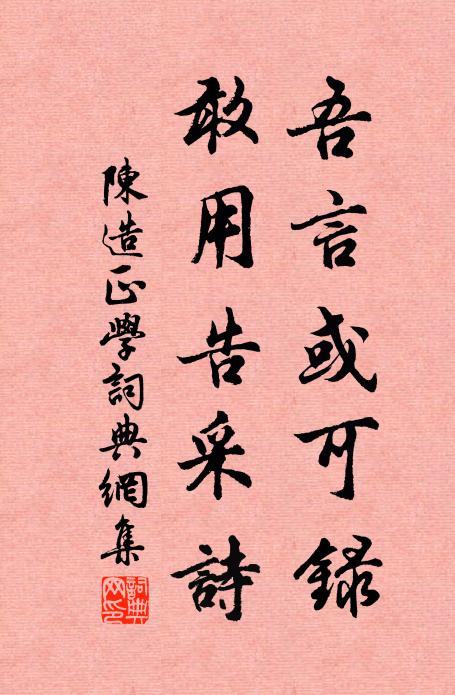 吾言或可録
敢用告采詩
陳造正學詞典網集
詞典網印